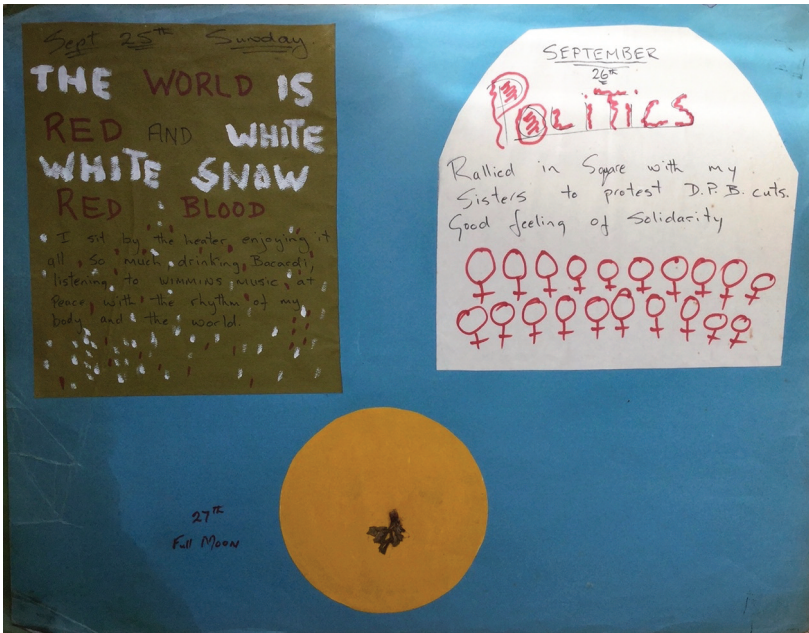 Sept 25th Sunday.
THE WORLD IS
RED AND WHITE
WHITE SNOW
RED BLOOD
I sit by the heater, enjoying it
all so much, drinking Bacardi,
listening to WIMMINS MUSIC, at
Peace, with the rhythm of my
body and the world.
SEPTEMBER
26th
POLITICS
Rallied in Square with my
Sisters to protest D.P.B. cuts.
Good feeling of Solidarity
27TH
Full MOON